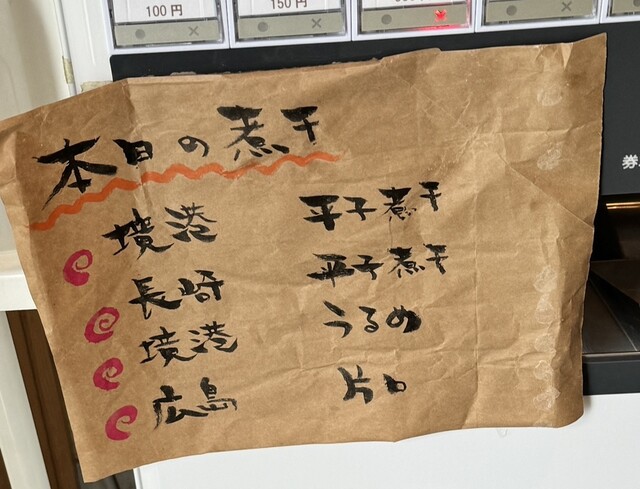 100円
150円
本日の煮干
境港 平子煮干
長崎 平子煮干
境港 うるめ
広島 片口
券